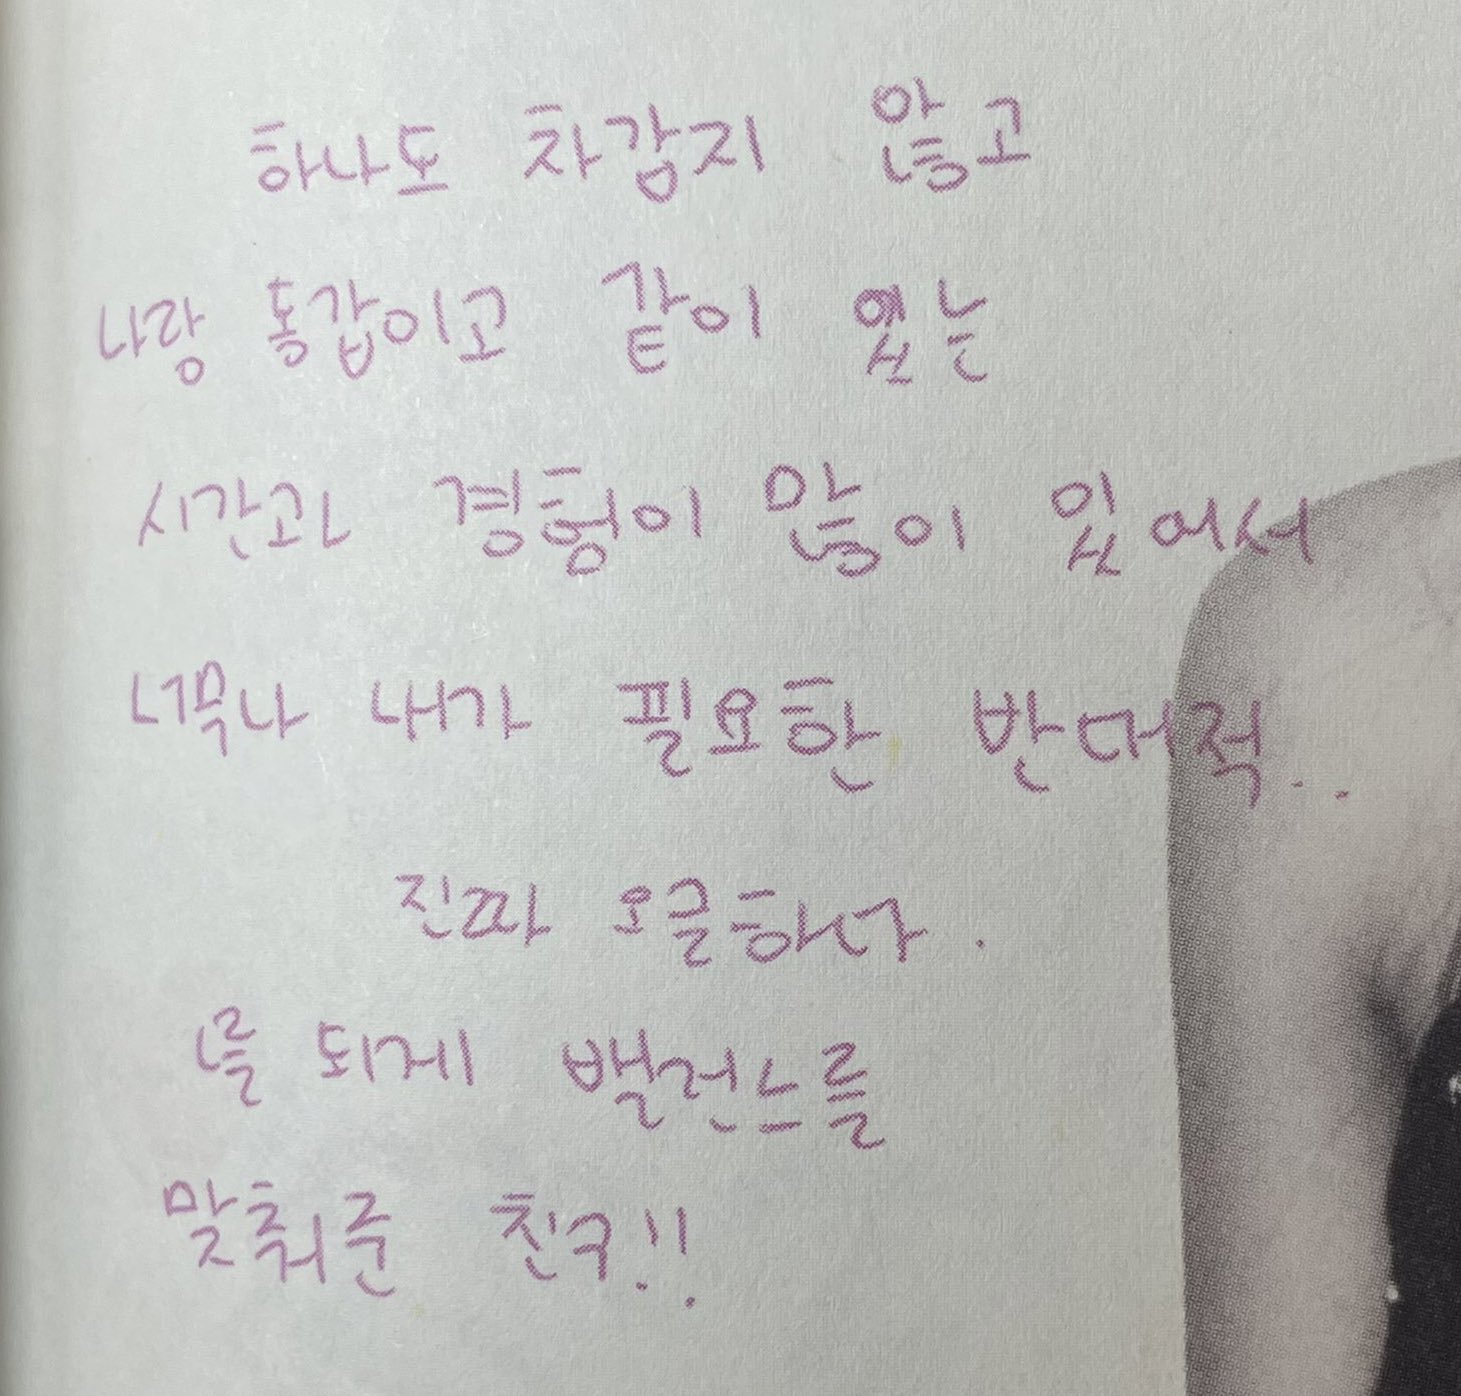 하나도 차갑지 않고
나랑 동갑이고 같이 있는
시간과 경험이 많이 있어서
너무나 내가 필요한 반대적..
진짜 오글하다.
늘 되게 밸런스를
맞춰준 친구!!